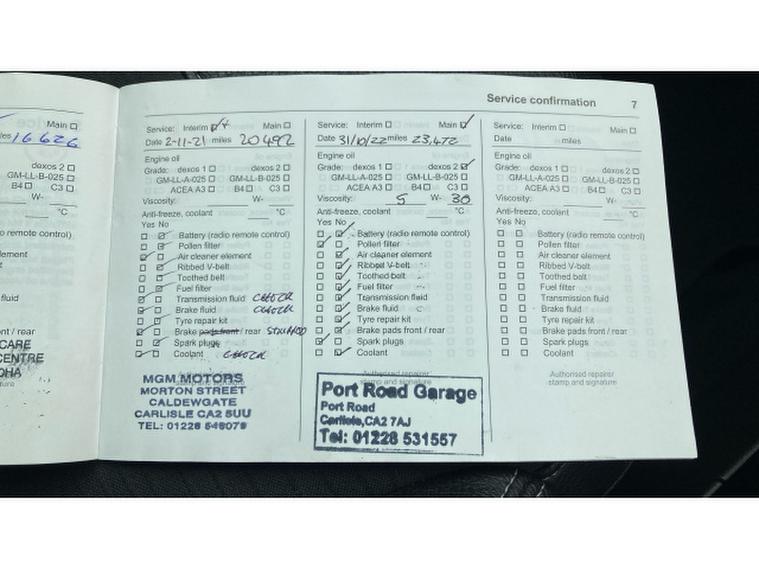 Service confirmation 7
Main
16626
dexos 2
GM-LL-B-025
C3
W-
°C
o remote control)
r
lement
t
fluid
nt / rear
CARE
CENTRE
OHA
ature
Service: Interim Main
Date 2-11-21 miles 20492
Engine oil
Grade: dexos 1 dexos 2
GM-LL-A-025 GM-LL-B-025
ACEA A3 B4 C3
Viscosity: W-
Anti-freeze, coolant °C
Yes No
Battery (radio remote control)
Pollen filter
Air cleaner element
Ribbed V-belt
Toothed belt
Fuel filter
Transmission fluid CHECK
Brake fluid CHECK
Tyre repair kit
Brake pads front / rear
Spark plugs
Coolant CHECK
stamp and signature
MGM MOTORS
MORTON STREET
CALDEWGATE
CARLISLE CA2 5UU
TEL: 01228
Service: Interim Main
Date 31/10/22 miles 23,472
Engine oil
Grade: dexos 1 dexos 2
GM-LL-A-025 GM-LL-B-025
ACEA A3 B4 C3
Viscosity: 5 W- 30
Anti-freeze, coolant °C
Yes No
Battery (radio remote control)
Pollen filter
Air cleaner element
Ribbed V-belt
Toothed belt
Fuel filter
Transmission fluid
Brake fluid
Tyre repair kit
Brake pads front / rear
Spark plugs
Coolant
Authorised repairer
stamp and signature
Port Road Garage
Port Road
Carlisle, CA2 7AJ
Tel: 01228 531557
Service: Interim Main
Date miles
Engine oil
Grade: dexos 1 dexos 2
GM-LL-A-025 GM-LL-B-025
ACEA A3 B4 C3
Viscosity: W-
Anti-freeze, coolant °C
Yes No
Battery (radio remote control)
Pollen filter
Air cleaner element
Ribbed V-belt
Toothed belt
Fuel filter
Transmission fluid
Brake fluid
Tyre repair kit
Brake pads front / rear
Spark plugs
Coolant
Authorised repairer
stamp and signature